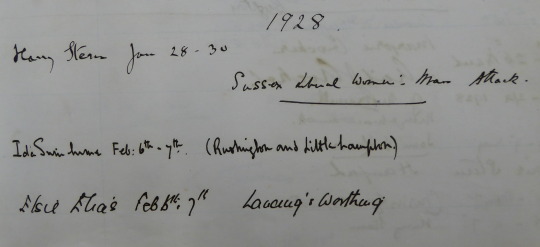 1928.
Harry Stern Jan 28-30
Sussex Liberal Women's Mass Attack.
Ida Swinburne Feb: 6th - 7th. (Rustington and Littlehampton)
Elsie Elias Feb 6th: 7th Lancing & Worthing